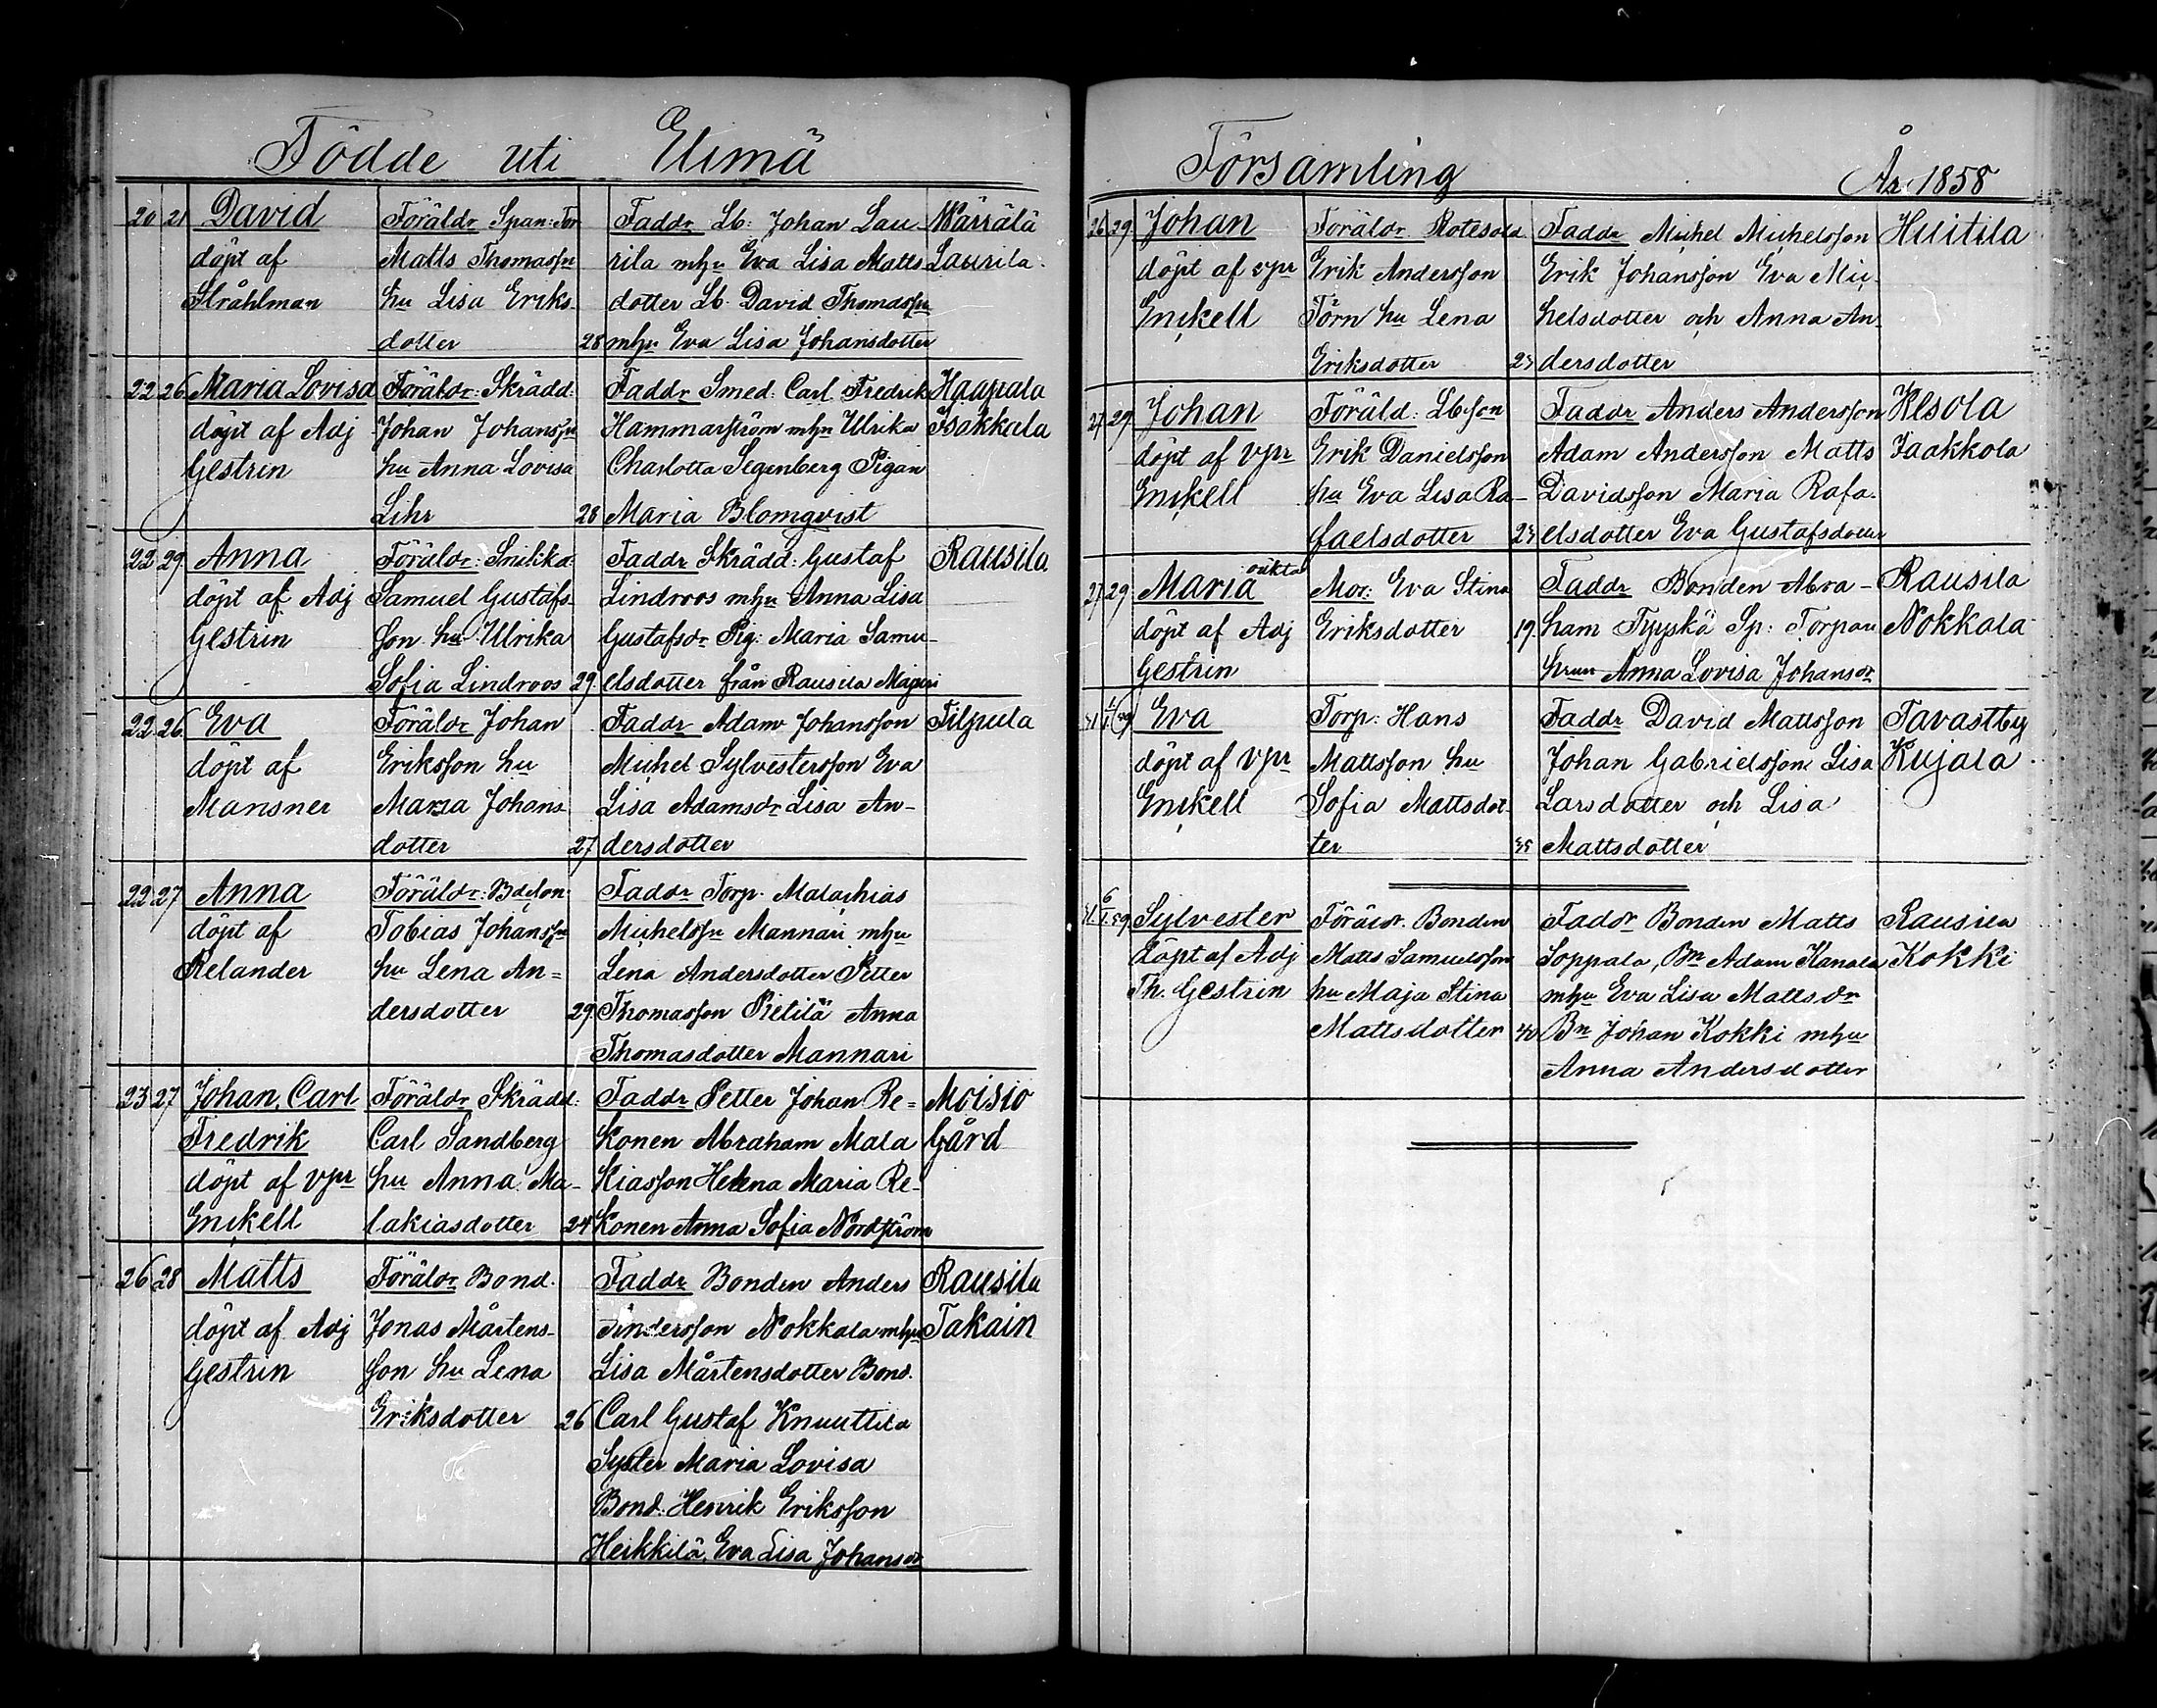 Födde uti Elimä
20 21 David Föräldr Span: Tor Faddr Lb: Johan Lau- Wärrälä
döpt af Matts Thomasson rila mhu Eva Lisa Matts Laurila
Stråhlman hu Lisa Eriks dotter Lb. David Thomasson
dotter 28 mhu Eva Lisa Johansdotter
22 26 Maria Lovisa Föräldr: Skrädd: Faddr Smed. Carl Fredrik Haapala
döpt af Adj Johan Johansson Hammarström mhu Ulrika Isakkala
Gestrin hu Anna Lovisa Charlotta Segenberg Pigan
Lihr 28 Maria Blomqvist
22 29 Anna Föräldr: Faddr Skrädd: Gustaf Rausila
döpt af Adj Samuel Gustafs Lindroos mhu Anna Lisa
Gestrin son hu Ulrika Gustafsdr Pig: Maria Samu-
Sofia Lindroos 29 elsdotter från Rausila
22 26 Eva Föräldr Johan Faddr Adam Johansson Filpula
döpt af Eriksson hu Michel Sylvestersson Eva
Mansner Maria Johans Lisa Adamsdr Lisa An-
dotter 27 dersdotter
22 27 Anna Föräldr: Bdeson Faddr Torp. Malachias
döpt af Tobias Johansson Michelsson Mannari mhu
Relander hu Lena An= Lena Andersdotter Petter
dersdotter 29 Thomasson Pietilä Anna
Thomasdotter Mannari
23 27 Johan, Carl Föräldr Skrädd: Faddr Petter Johan Re= Moisio
Fredrik Carl Sandberg konen Abraham Mala Gård
döpt af vpr hu Anna Ma- kiasson Helena Maria Re-
Enckell lakiasdotter 24 konen Anna Sofia Nordström
26 28 Matts Föräldr Bond. Faddr Bonden Anders Rausila
döpt af Adj Jonas Mårtens- Andersson Nokkala mhu Takain
Gestrin son hu Lena Lisa Mårtensdotter Bond.
Eriksdotter 26 Carl Gustaf Knuuttila
Syster Maria Lovisa
Bond: Henrik Eriksson
Heikkilä, Eva Lisa Johansdr
Församling År 1858
26 29 Johan Föräldr Rotesold Faddr Michel Michelsson Huitila
döpt af vpr Erik Andersson Erik Johansson Eva Mic
Enckell Törn hu Lena helsdotter och Anna An
Eriksdotter 23 dersdotter
27 29 Johan Föräld: Lbson Faddr Anders Andersson Wesola
döpt af vpr Erik Danielsson Adam Andersson Matts Jaakkola
Enckell hu Eva Lisa Ra- Davidsson Maria Rafa.
faelsdotter 23 elsdotter Eva Gustafsdotter
27 29 Maria oäkta Mor: Eva Stina Faddr Bonden Abra- Rausila
döpt af Adj Eriksdotter 19. ham Typpskä Sp: Torpau Nokkala
Gestrin hrun Anna Lovisa Johansdr
31 1/1 59 Eva Torp: Hans Faddr David Mattsson Tavastby
döpt af vpr Mattsson hu Johan Gabrielsson Lisa Kujala
Enckell Sofia Mattsdot Larsdotter och Lisa
ter 35 Mattsdotter
31. 6/1.59. Sylvester Föräldr. Bonden Faddr Bonden Matts Rausila
döpt af Adj Matts Samuelsson Soppala, Bn Adam Kanala Kokki
Th. Gestrin hu Maja Stina mhu Eva Lisa Mattsdr
Mattsdotter 40 Bn Johan Kokki mhu
Anna Andersdotter